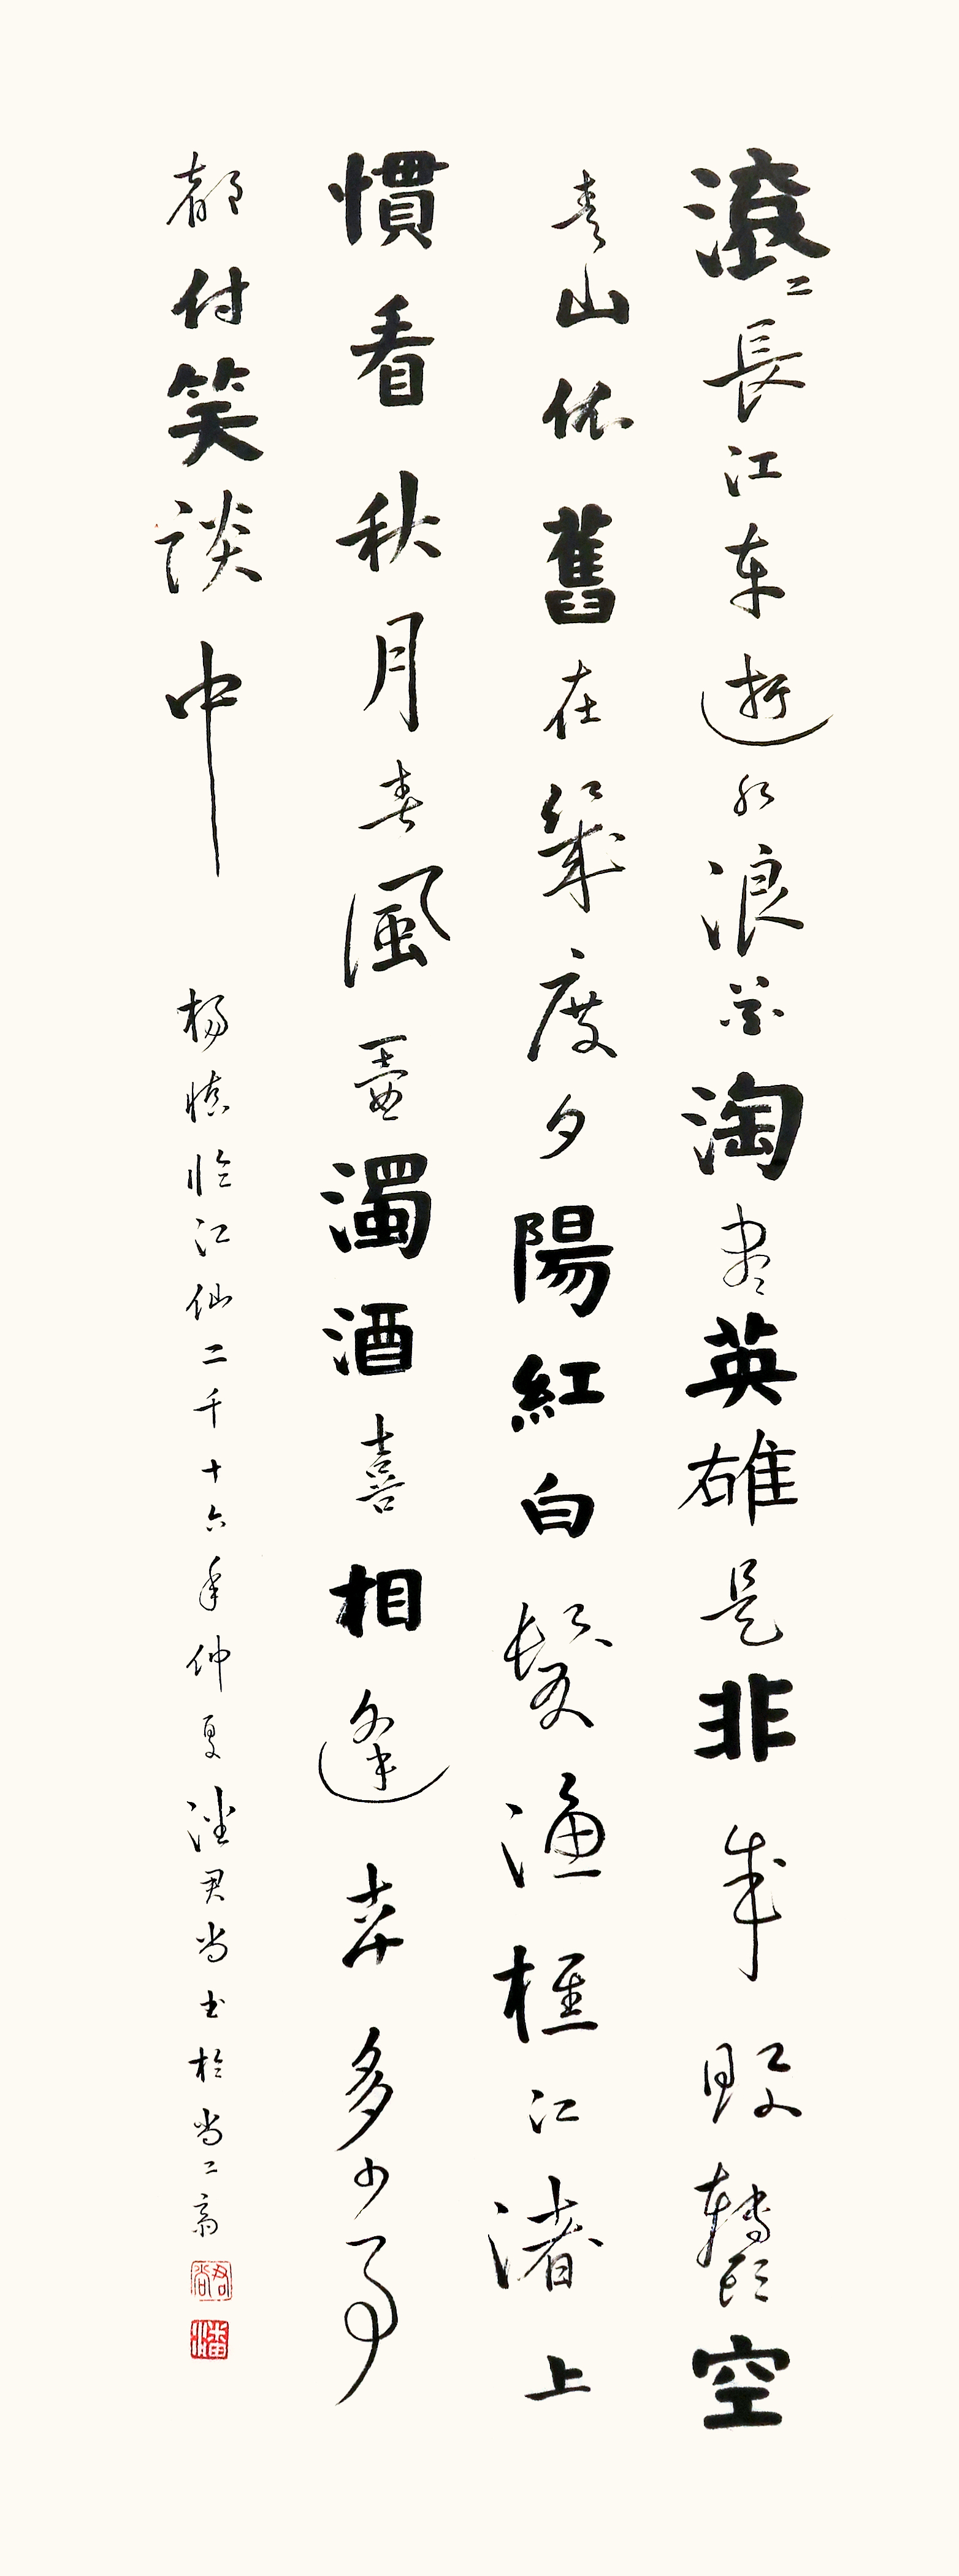 滾〻長江東逝水浪花淘盡英雄是非成敗轉頭空
青山依舊在幾度夕陽紅白髮漁樵江渚上
慣看秋月春風一壺濁酒喜相逢古今多少事
都付笑談中 楊慎臨江仙二千十六年仲夏潘君尚書於尚〻齋
君尚
潘